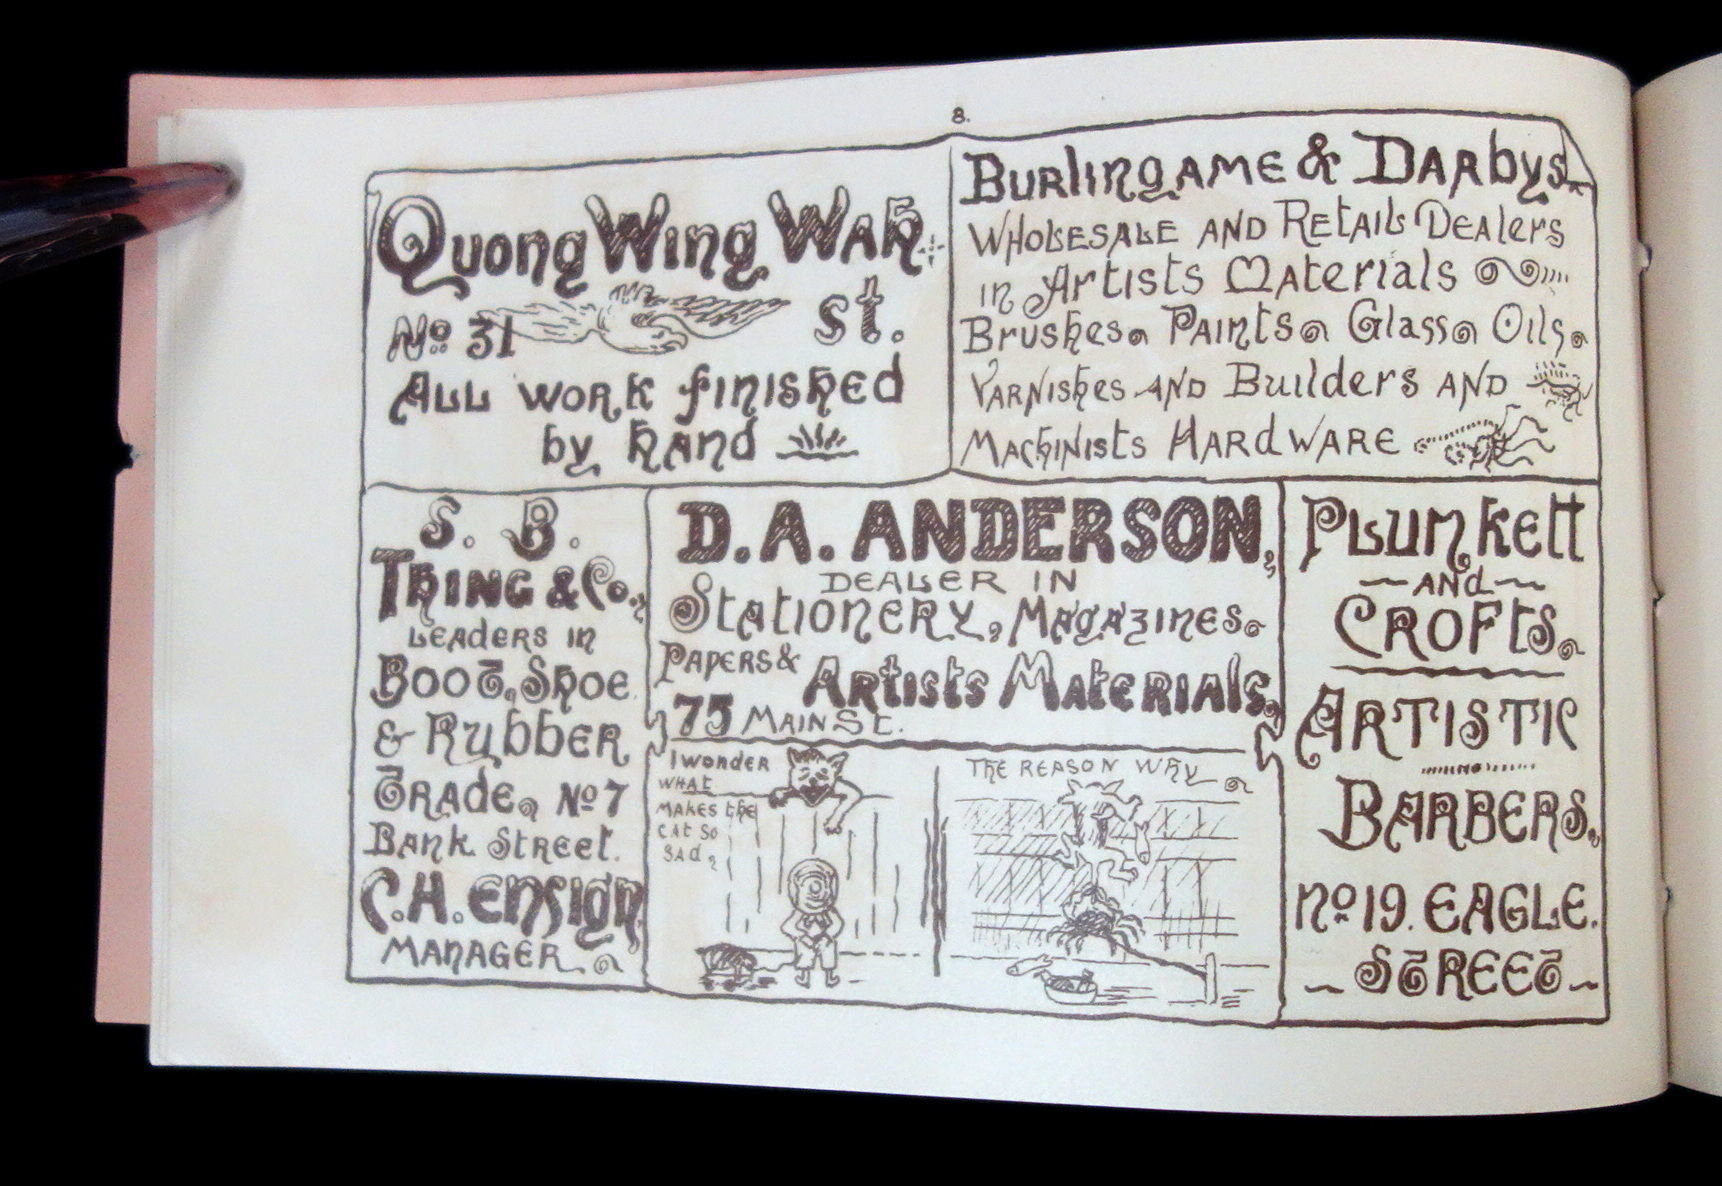 8.
Quong Wing Wah
No 31 st.
All work finished
by hand
Burlingame & Darbys.
Wholesale and Retail Dealers
in Artists Materials
Brushes, Paints, Glass, Oils,
Varnishes and Builders and
Machinists Hardware
S. B.
Thing & Co.,
Leaders in
Boot, Shoe
& Rubber
Trade, No 7
Bank Street.
C.H. Ensign
Manager.
D.A. ANDERSON,
DEALER IN
Stationery, Magazines,
Papers &
Artists Materials,
75 Main St.
I wonder
what
makes the
cat so
sad,
The reason why
Plunkett
and
Crofts,
Artistic
Barbers,
No 19. Eagle.
Street